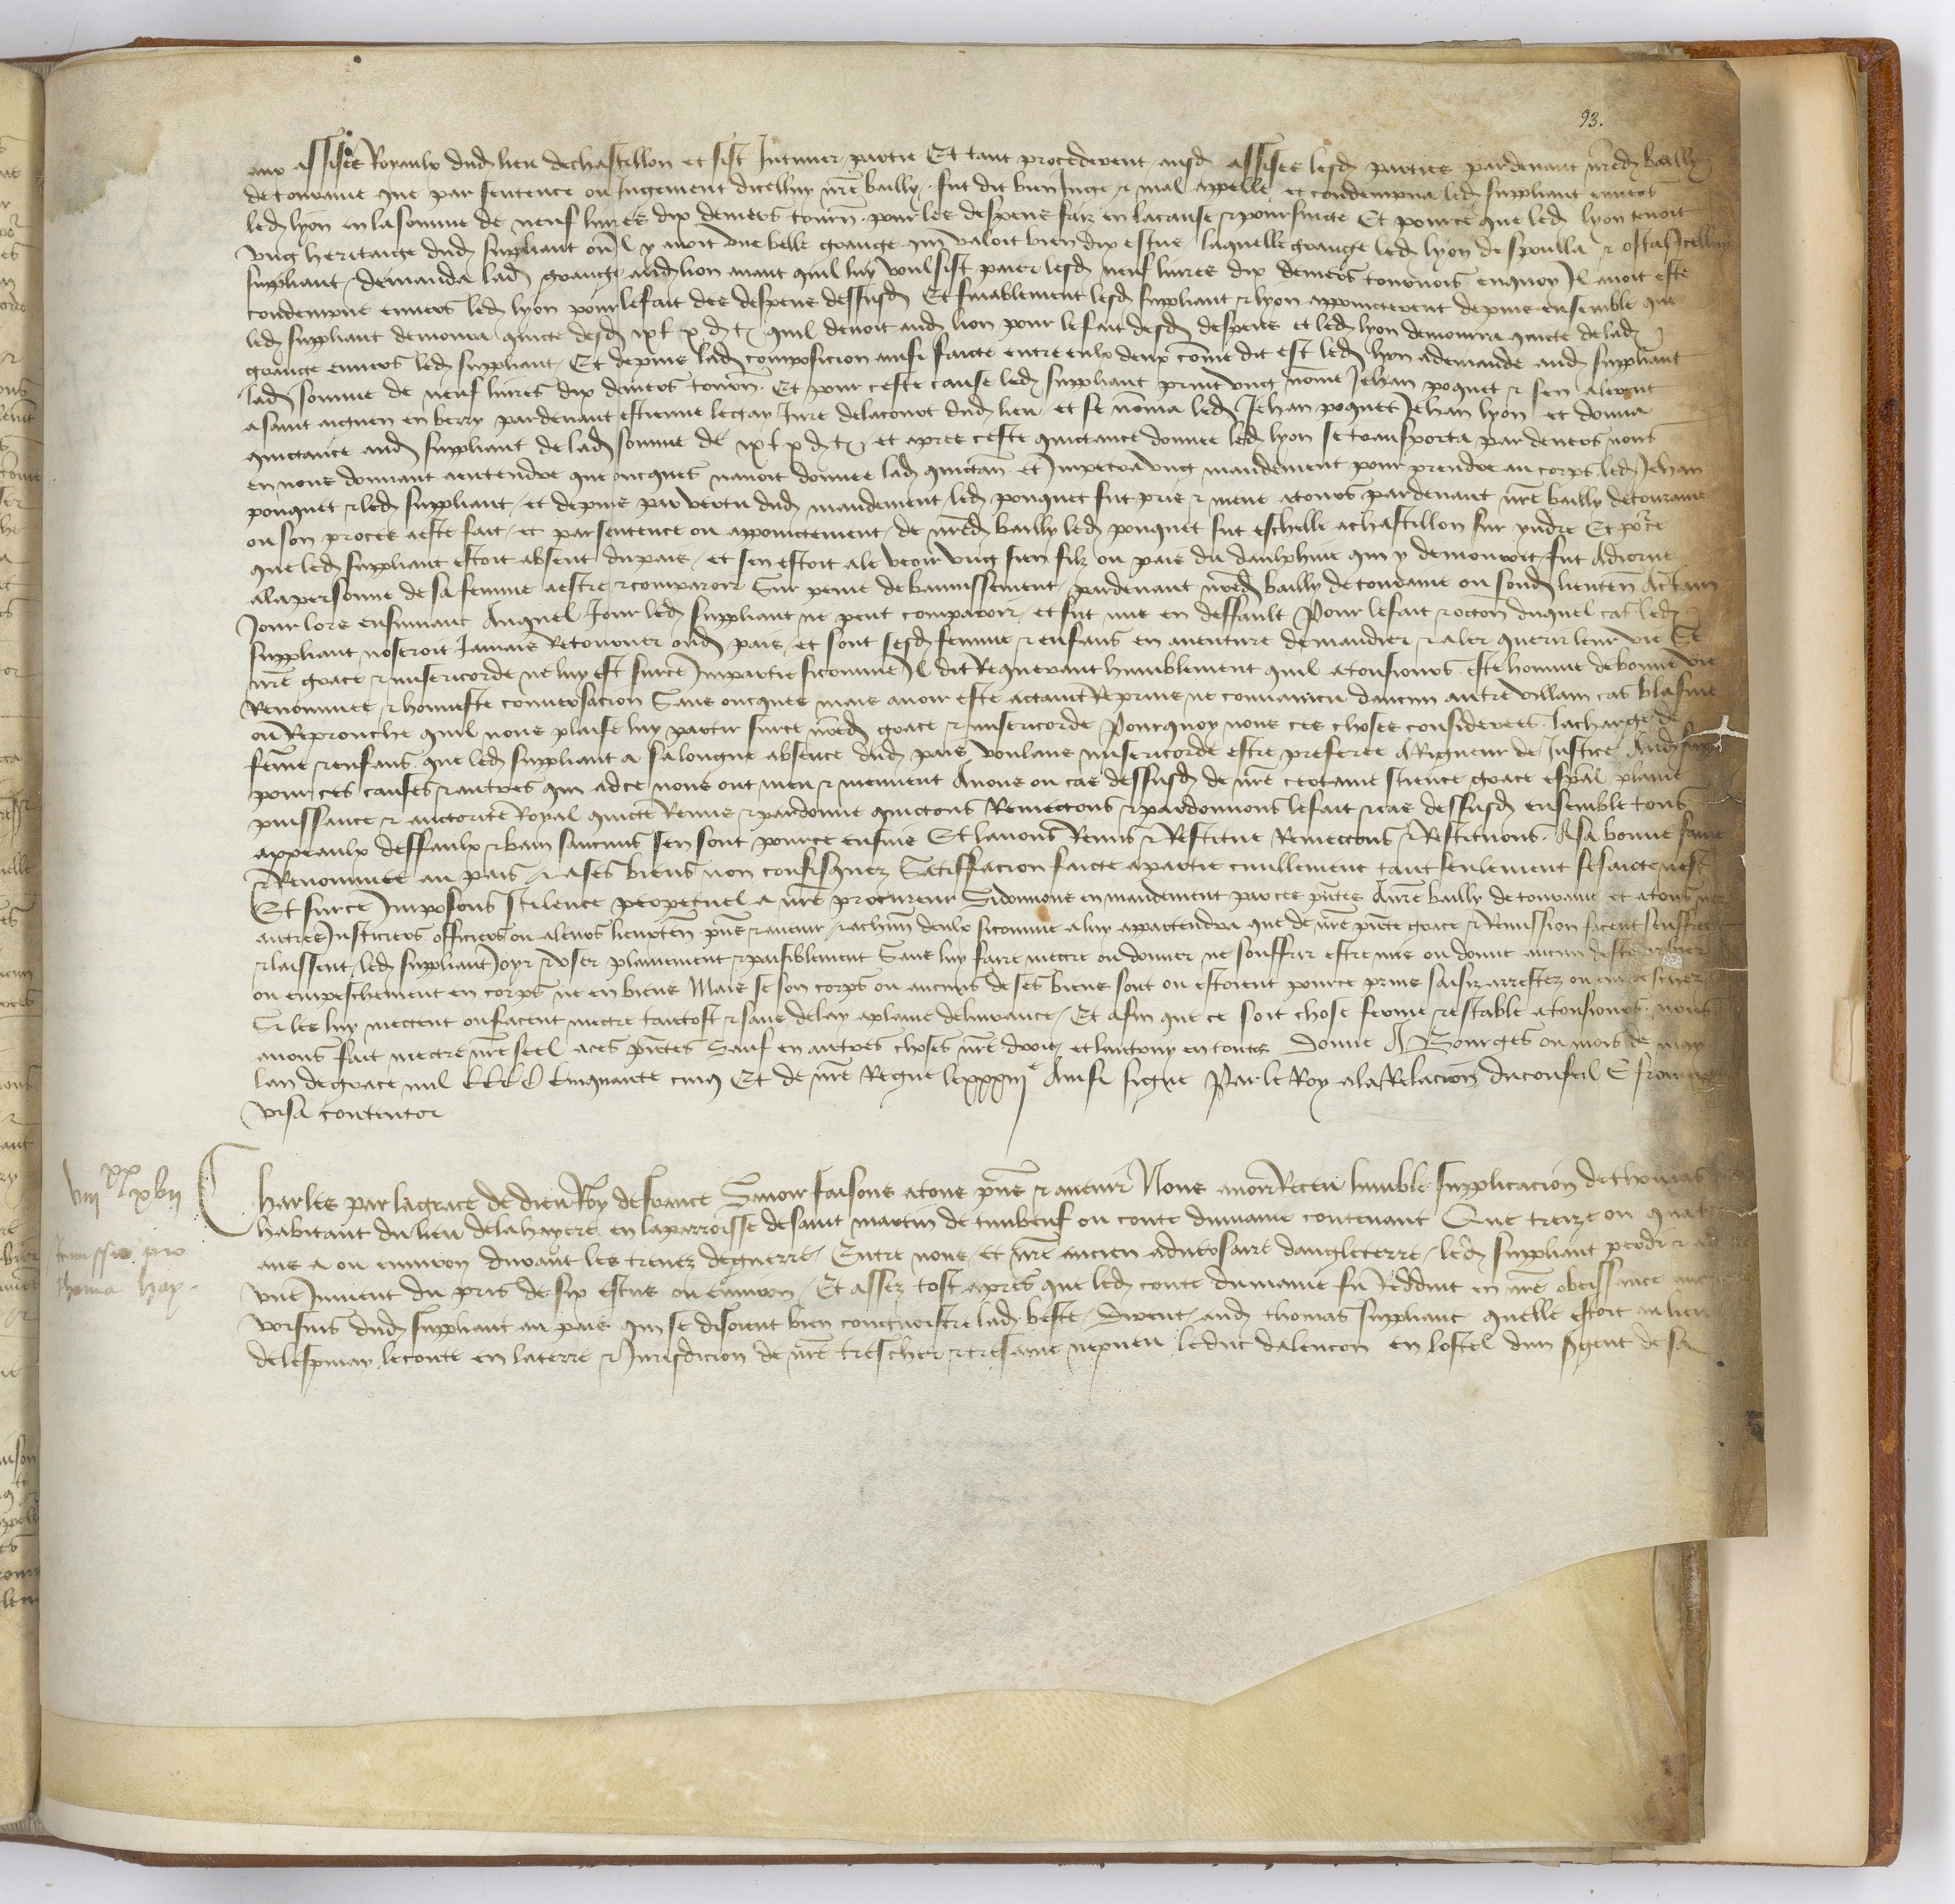 93.
aux assises Royaulx dud lieu de chastillon et fist Intimer partie Et tant procederent ausd assises lesd parties pardevant nred bailly
de touraine que par sentence ou Jugement dicelluy nre bailly fut dit bien Juge et mal appelle et condempna led suppliant envers
led lyon en la somme de neuf livres dix deniers tourn pour les despens faiz en la cause et poursuicte Et pource que led lyon tenoit
ung heritaige dud suppliant ou Il y avoit une belle grange qui valoit bien dix escus laquelle grange led lyon despoulla et osta Icelluy
suppliant demanda lad grange aud lion avant quil luy voulsist paier lesd neuf livres dix deniers tournois enquoy Il avoit este
condempne envers led lyon pour le fait des despens dessusd Et finablement lesd suppliant et lyon appoincterent depuis ensemble que
led suppliant demoura quicte desd ix l x d t quil devoit aud lion pour le fait desd despens et led lyon demoura quicte de lad
grange envers led suppliant Et depuis lad composicion ainsi faicte entre eulx deux come dit est led lyon a demande aud suppliant
lad somme de neuf livres dix deniers tourn Et pour ceste cause led suppliant print ung nome Jehan poquet et sen alerent
a saint aignen en berry pardevant estienne lectay Jure de la court dud lieu et se noma led Jehan poquet Jehan lyon et donna
quictance aud suppliant de lad somme de ix l x d t et apres ceste quictance donnee led lyon se transporta par devers nous
en nous donnant a entendre que oncques navoit donnee lad quictan et Impetra ung mandement pour prendre au corps led Jehan
pouquet et led suppliant et depuis par vertu dud mandement led pouquet fut pris et mene a tours pardevant nre bailly de touraine
ou son proces a este fait et par sentence ou appoinctement de nred bailly led pouquet fut eschelle a chastillon sur yndre Et porce
que led suppliant estoit absent du pais et sen estoit ale veoir ung sien filz ou pais du daulphine qui y demouroit fut adiorne
a la personne de sa femme a estre et comparoir Sur peine de bannissement pardevant nred bailly de touraine ou sond lieuten A certain
Jour lors ensuivant Auquel Jour led suppliant ne peut comparoir et fut mis en deffault Pour le fait et occon duquel cas led
suppliant noseroit Jamais Retourner oud pais et sont sesd femme et enfans en aventure de mandier et aler querir leur vie Se
nre grace et misericorde ne luy est surce Impartie sicomme Il dit Requerant humblement quil a tousiours este homme de bonne vie
Renommee et honneste conversacion Sans oncques mais avoir este actaint Reprins ne convaincu daucun autre villain cas blasme
ou Reprouche quil nous plaise luy partir surce nred grace et misericorde Pourquoy nous ces choses considerees la charge de
feme et enfans que led suppliant a sa longue absence dud pais voulans misericorde estre preferee A Rigueur de Justice Aud supp
pour ces causes et autres qui adce nous ont meu et meuvent Avons ou cas dessusd de nre certaine science grace espal plaine
puissance et auctorite Royal quicte Remis et pardonne quictons Remectons et pardonnons le fait et cas dessusd ensemble tous
appeaulx deffaulx et bam saucuns sen sont pource ensuis Et lavons Remis et Restitue Remectons et Restituons A sa bonne fame
et Renommee au pais et a ses biens non confisquez Satisfacion faicte a partie civillement tant seulement se faicte nest
Et surce Imposons scilence perpetuel a nre procureur Si donnons en mandement par ces pntes A nre bailly de touraine et a tous noz
autres Justiciers officiers ou a leurs lieuxten pns et avenir et a chun deulx sicomme a luy appartendra que de nre pnte grace et Remission facent seuffrent
et laissent led suppliant Joyr et User plainement et paisiblement Sans luy faire mectre ou donner ne souffrir estre mis ou donne aucun destourbier
ou empeschement en corps ne en biens Mais se son corps ou aucuns de ses biens sont ou estoient pource prins saisiz arrestez ou
Si les luy mectent ou facent mectre tantost et sans delay a plaine delivrance Et afin que ce soit chose ferme et estable a tousiours nous
avons fait mectre nre seel a ces pntes Sauf en autres choses nre droit et lautruy en toutes Donne A Bourges ou mois de may
lan de grace mil CCCC Cinquante cinq Et de nre Regne le xxxiii e Ainsi signe Par le Roy a la Relacion du conseil E froment
visa contentor
viii xx xvii
Remissio pro
Thoma hay
Charles par la grace de dieu Roy de france Savoir faisons a tous pns et avenir Nous avoir Receu humble supplicacion de thomas
habitant du lieu de la hayere en la parroisse de saint martin de tubeuf ou conte du maine contenant Que treize ou quat
ans a ou environ durant les treves de guerre Entre nous et nre ancien adversaire dangleterre led suppliant perdi et a
une Jument du pris de six escus ou environ Et assez tost apres que led conte du maine fu Redduit en nre obeissance auc
voisins dud suppliant au pais qui se disoient bien congnoistre lad beste dirent aud thomas suppliant quelle estoit au lieu
de lespinay le conte en la terre et Jurisdicion de nre trescher et tresame nepveu le duc dalencon en lostel dun sgent de sa